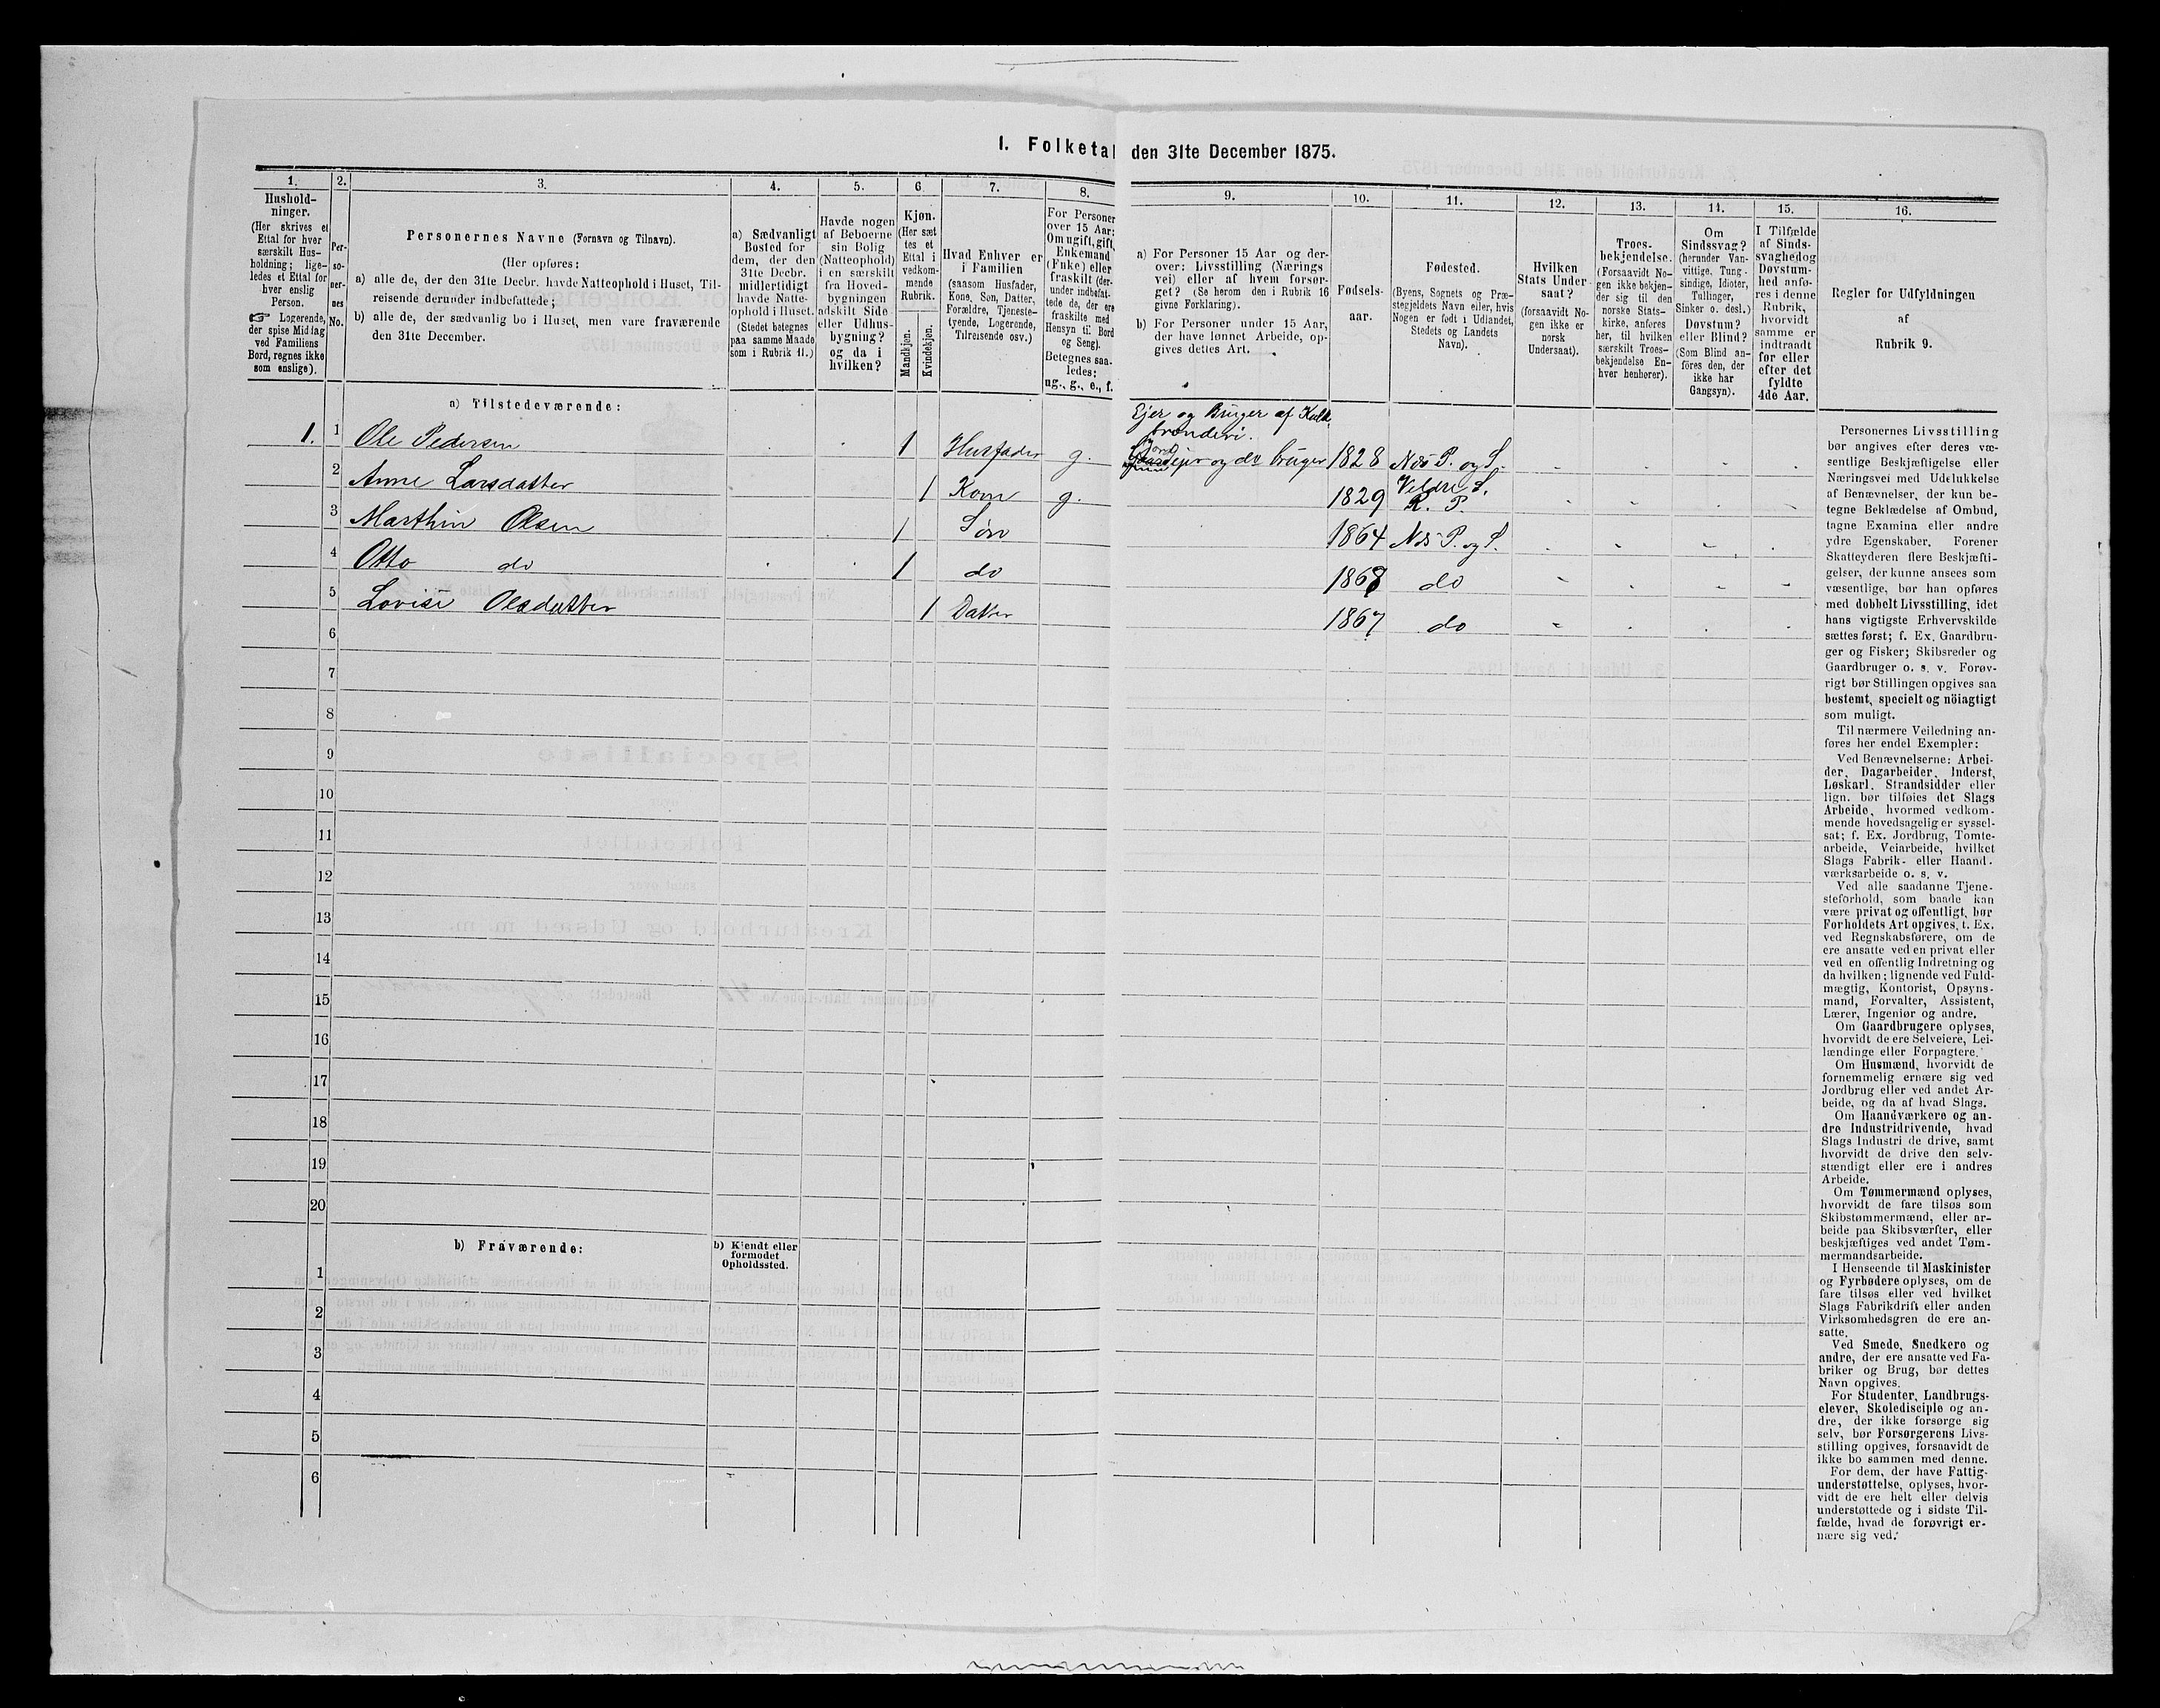 I. Folketal den 31te December 1875.
1.
Hushold-
ninger.
(Her skrives et
Ettal for hver
særskilt Hus-
holdning; lige-
ledes et Ettal for
hver enslig
Person.
☞ Logerende,
der spise Middag
ved Familiens
Bord, regnes ikke
som enslige).
2.
Per-
so-
ner-
nes
No.
3.
Personernes Navne (Fornavn og Tilnavn).
(Her opføres:
a) alle de, der den 31te Decbr. havde Natteophold i Huset, Til-
reisende derunder indbefattede;
b) alle de, der sædvanlig bo i Huset, men vare fraværende
den 31te December.
4.
a) Sædvanligt
Bosted for
dem, der den
31te Decbr.
midlertidigt
havde Natte-
ophold i Huset.
(Stedet betegnes
paa samme Maade
som i Rubrik 11.)
5.
Havde nogen
af Beboerne
sin Bolig
(Natteophold)
i en særskilt
fra Hoved-
bygningen
adskilt Side-
eller Udhus-
bygning?
og da i
hvilken?
6.
Kjøn.
(Her sæt-
tes et
Ettal i
vedkom-
mende
Rubrik.
Mandkjøn.
Kvindekjøn.
7.
Hvad Enhver er
i Familien
(saasom Husfader,
Kone, Søn, Datter,
Forældre, Tjeneste-
tyende, Logerende,
Tilreisende osv.)
8.
For Personer
over 15 Aar:
Om ugift, gift,
Enkemand
(Enke) eller
fraskilt (der-
under indbefat-
tede de, der ere
fraskilte med
Hensyn til Bord
og Seng).
Betegnes saa-
ledes:
ug., g., e., f.
9.
a) For Personer 15 Aar og der-
over: Livsstilling (Nærings
vei) eller af hvem forsør-
get? (Se herom den i Rubrik 16
givne Forklaring).
b) For Personer under 15 Aar,
der have lønnet Arbeide, op-
gives dettes Art.
10.
Fødsels-
aar.
11.
Fødested.
(Byens, Sognets og Præ-
stegjeldets Navn eller, hvis
Nogen er født i Udlandet,
Stedets og Landets
Navn).
12.
Hvilken
Stats Under-
saat?
(forsaavidt No-
gen ikke er
norsk
Undersaat).
13.
Troes-
bekjendelse.
(Forsaavidt No-
gen ikke bekjen-
der sig til den
norske Stats-
kirke, anføres
her, til hvilken
særskilt Troes-
bekjendelse En-
hver henhører).
14.
Om
Sindssvag?
(herunder Van-
vittige, Tung-
sindige, Idioter,
Tullinger,
Sinker o. desl.)
Døvstum?
eller Blind?
(Som Blind an-
føres den, der
ikke har
Gangsyn).
15.
I Tilfælde
af Sinds-
svaghed og
Døvstum-
hed anfø-
res i denne
Rubrik,
hvorvidt
samme er
indtraadt
før eller
efter det
fyldte
4de Aar.
16.
Regler for Udfyldningen
af
Rubrik 9.
a) Tilstedeværende:
Ejer og Bruger af Kalk-
brænderi.
1. 1 Ole Pedersen 1 Husfader g. Jordejer og do bruger 1828 Næs P. og S.
2 Anne Larsdatter 1 Kone g. 1829 Veldre S. R. P.
3 Marthin Olsen 1 Søn 1864 Næs P. og S.
4 Otto do 1 do 1868 do
5 Lovise Olsdatter 1 Datter 1867 do
6
7
8
9
10
11
12
13
14
15
16
17
18
19
20
b) Fraværende:
b) Kjendt eller
formodet
Opholdssted.
1
2
3
4
5
6
Personernes Livsstilling
bør angives efter deres væ-
sentlige Beskjæftigelse eller
Næringsvei med Udelukkelse
af Benævnelser, der kun be-
tegne Beklædelse af Ombud,
tagne Examina eller andre
ydre Egenskaber. Forener
Skatteyderen flere Beskjæfti-
gelser, der kunne ansees som
væsentlige, bør han opføres
med dobbelt Livsstilling, idet
hans vigtigste Erhvervskilde
sættes først; f. Ex. Gaardbru-
ger og Fisker; Skibsreder og
Gaardbruger o. s. v. Forøv-
rigt bør Stillingen opgives saa
bestemt, specielt og nöiagtigt
som muligt.
Til nærmere Veiledning an-
føres her endel Exempler:
Ved Benævnelserne: Arbei-
der, Dagarbeider, Inderst,
Løskarl, Strandsidder eller
lign. bør tilføies det Slags
Arbeide, hvormed vedkom-
mende hovedsagelig er syssel-
sat; f. Ex. Jordbrug, Tomte-
arbeide, Veiarbeide, hvilket
Slags Fabrik- eller Haand-
værksarbeide o. s. v.
Ved alle saadanne Tjene-
steforhold, som baade kan
være privat og offentligt, bør
Forholdets Art opgives, t. Ex.
ved Regnskabsførere, om de
ere ansatte ved en privat eller
ved en offentlig Indretning og
da hvilken; lignende ved Fuld-
mægtig, Kontorist, Opsyns-
mand, Forvalter, Assistent,
Lærer, Ingeniør og andre.
Om Gaardbrugere oplyses,
hvorvidt de ere Selveiere, Lei-
lændinge eller Forpagtere.
Om Husmænd, hvorvidt de
fornemmelig ernære sig ved
Jordbrug eller ved andet Ar-
beide, og da af hvad Slags.
Om Haandværkere og an-
dre Industridrivende, hvad
Slags Industri de drive, samt
hvorvidt de drive den selv-
stændigt eller ere i andres
Arbeide.
Om Tømmermænd oplyses,
hvorvidt de fare tilsøs som
Skibstømmermænd, eller ar-
beide paa Skibsværfter, eller
beskjæftiges ved andet Tøm-
mermandsarbeide.
I Henseende til Maskinister
og Fyrbødere oplyses, om de
fare tilsøs eller ved hvilket
Slags Fabrikdrift eller anden
Virksomhedsgren de ere an-
satte.
Ved Smede, Snedkere og
andre, der ere ansatte ved Fa-
briker og Brug, bør dettes
Navn opgives.
For Studenter, Landbrugs-
elever, Skoledisciple og an-
dre, der ikke forsørge sig
selv, bør Forsørgerens Livs-
stilling opgives, forsaavidt de
ikke bo sammen med denne.
For dem, der have Fattig-
understøttelse, oplyses, hvor-
vidt de ere helt eller delvis
understøttede og i sidste Til-
fælde, hvad de forøvrigt er-
nære sig ved.